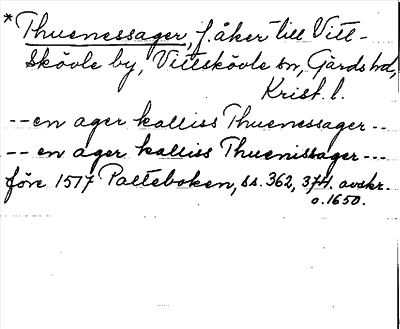 *Thuenessager, f. åker till Vitt-
skövle by, Vittskövle sn, Gärds hd,
Krist. l.
--en ager kalliss Thuenessager--
--en ager kalliss Thuenissager---
före 1517 Palteboken, ss. 362, 374. avskr.
o. 1650.